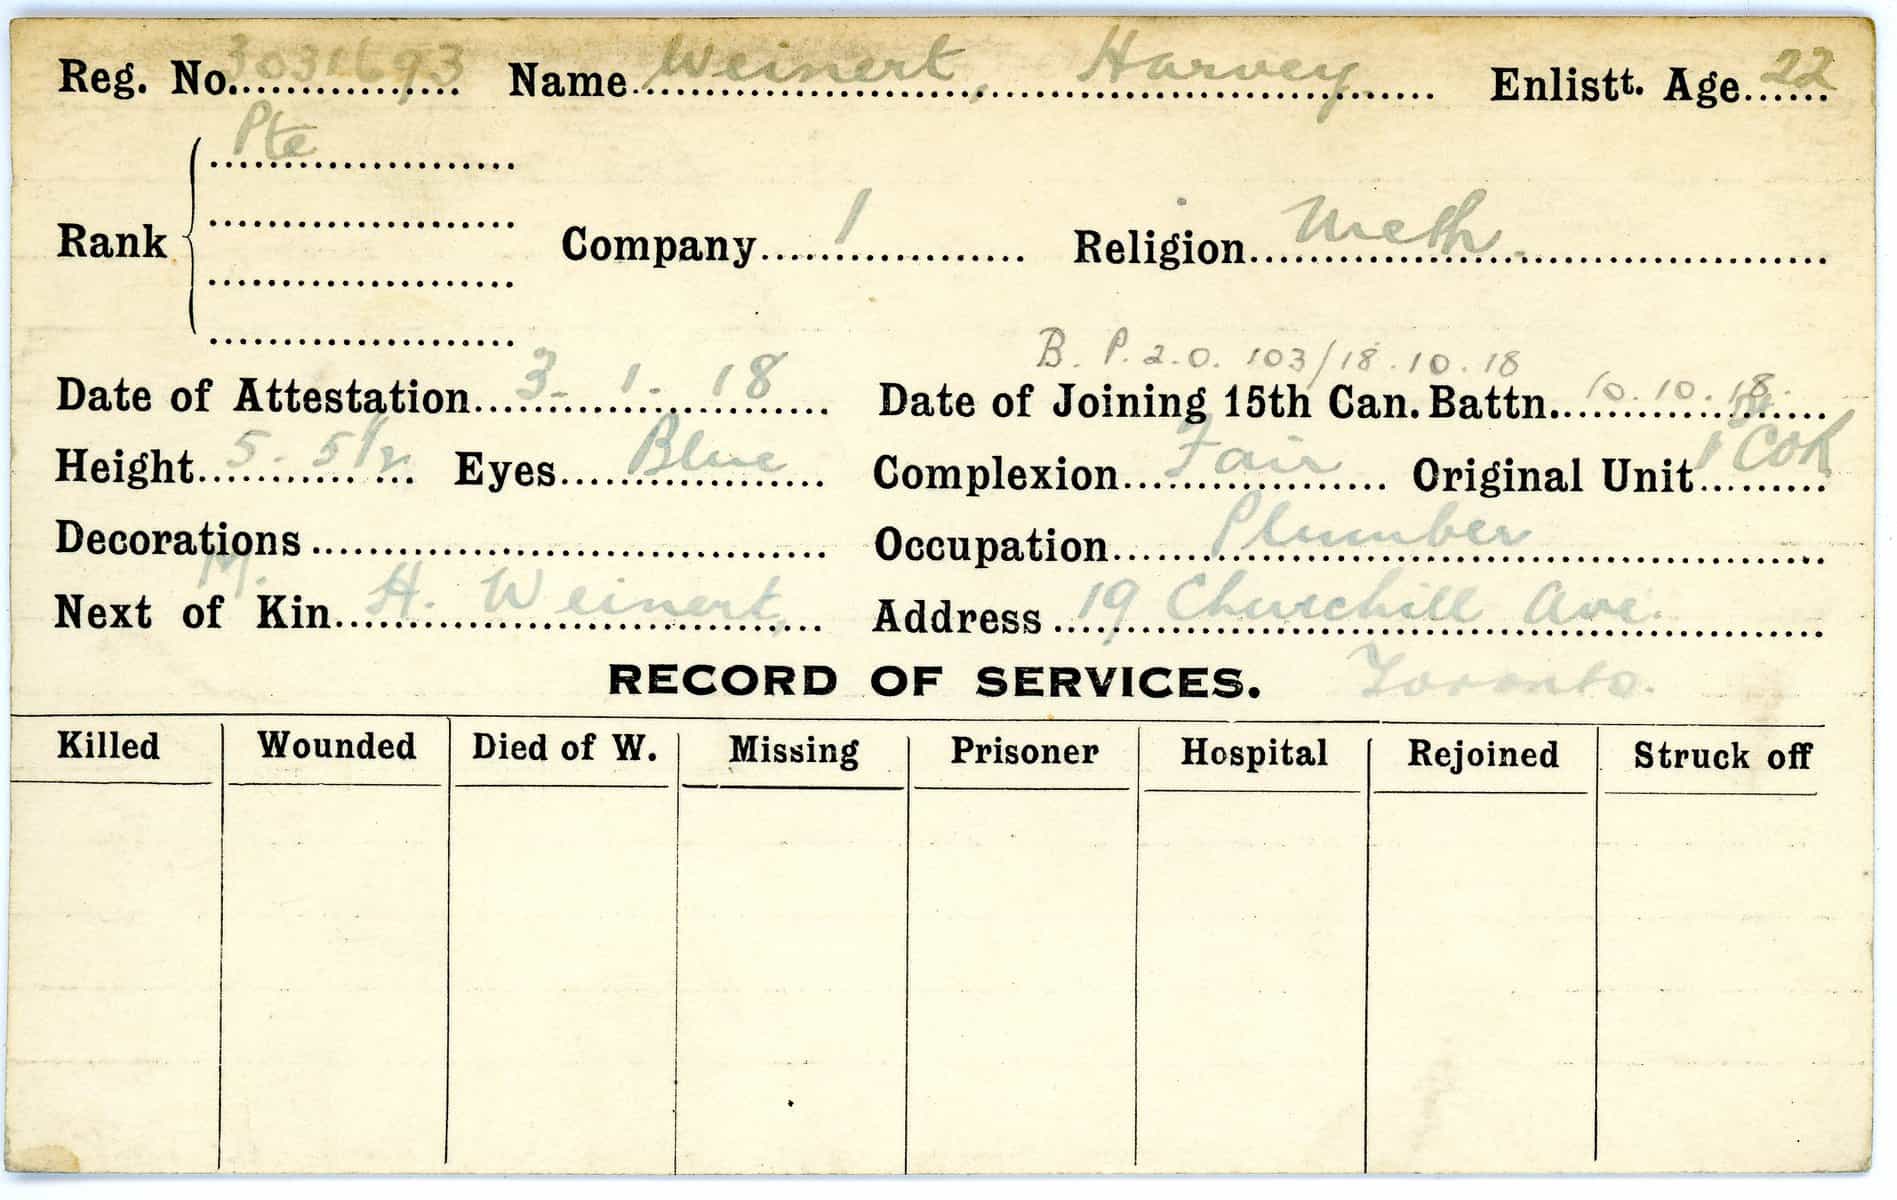 Reg. No. 3031693 Name Weinert, Harvey Enlistt. Age 22
Pte
Rank Company 1 Religion Meth.
B. P. 2.0. 103/18.10.18
Date of Attestation 3-1-18 Date of Joining 15th Can. Battn. 10.10.18.
Height 5-5 1/2 Eyes Blue Complexion Fair Original Unit 1 COR
Decorations Occupation Plumber
M.
Next of Kin H. Weinert, Address 19 Churchill Ave.
RECORD OF SERVICES. Toronto.
Killed Wounded Died of W. Missing Prisoner Hospital Rejoined Struck off